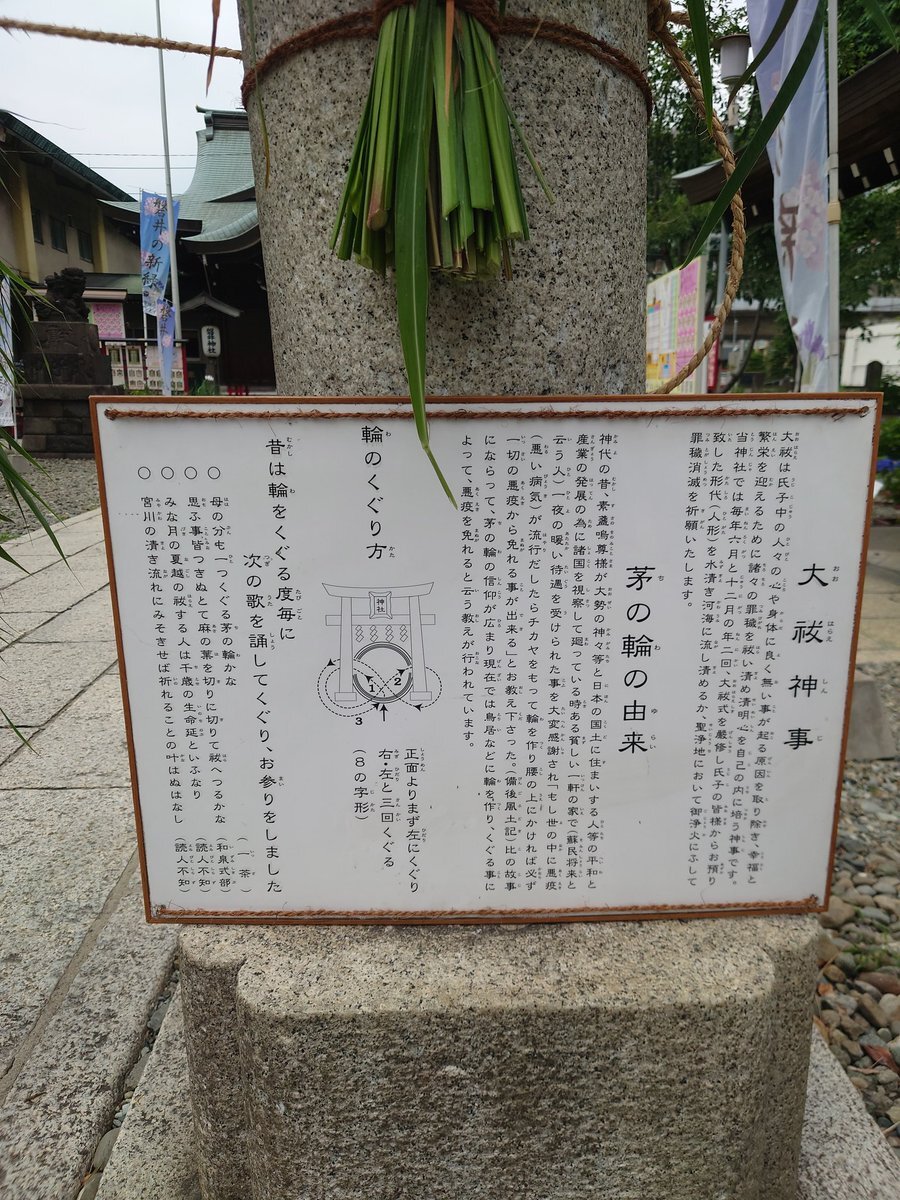 大祓神事
大祓は氏子中の人々の心や身体に良く無い事が起る原因を取り除き、幸福と
繁栄を迎えるために諸々の罪穢を祓い清め清明心を自己の内に培う神事です。
当神社では毎年六月と十二月の年二回、大祓式を厳修し氏子の皆様からお預り
致した形代(人形)を水清き河海に流し清めるか、聖浄地において御浄火にふして
罪穢消滅を祈願いたします。
茅の輪の由来
神代の昔、素盞嗚尊様が大勢の神々等と日本の国土に住まいする人等の平和と
産業の発展の為に諸国を視察して廻っている時ある貧しい一軒の家で(蘇民将来と
云う人)一夜の暖い待遇を受けられた事を大変感謝され「もし世の中に悪疫
(悪い病気)が流行だしたらチカヤをもって輪を作り腰の上にかければ必ず
一切の悪疫から免れる事が出来る」とお教え下さった。(備後風土記)比の故事
にならって、茅の輪の信仰が広まり現在では鳥居などに輪を作り、くぐる事に
よって、悪疫を免れると云う教えが行われています。
輪のくぐり方
神社
1
2
3
正面よりまず左にくぐり
右・左と三回くぐる
(8の字形)
昔は輪をくぐる度毎に
次の歌を誦してくぐり、お参りをしました
○ 母の分も一つくぐる茅の輪かな (一茶)
○ 思ふ事皆つきぬとて麻の葉を切りに切りて祓へつるかな (和泉式部)
○ みな月の夏越の祓する人は千歳の生命延といふなり (読人不知)
○ 宮川の清き流れにみそぎせば祈れることの叶はぬはなし (読人不知)
磐井の新緑
磐井
磐井神社